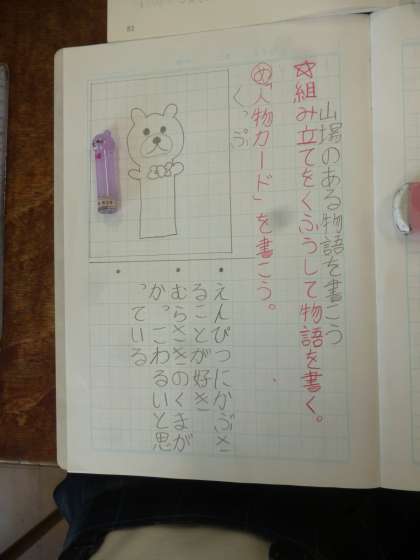 山場のある物語を書こう
☆組み立てをくふうして物語を書く。
め「人物カード」を書こう。
くっぷ
・えんぴつにかぶさ
ることが好き
・むらさきのくまが
・かっこわるいと思
っている